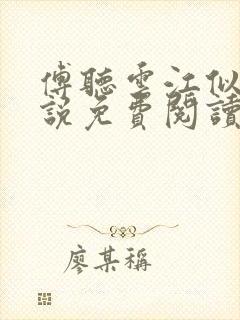 傅聽雲江似
說免費閱讀
廖某稱